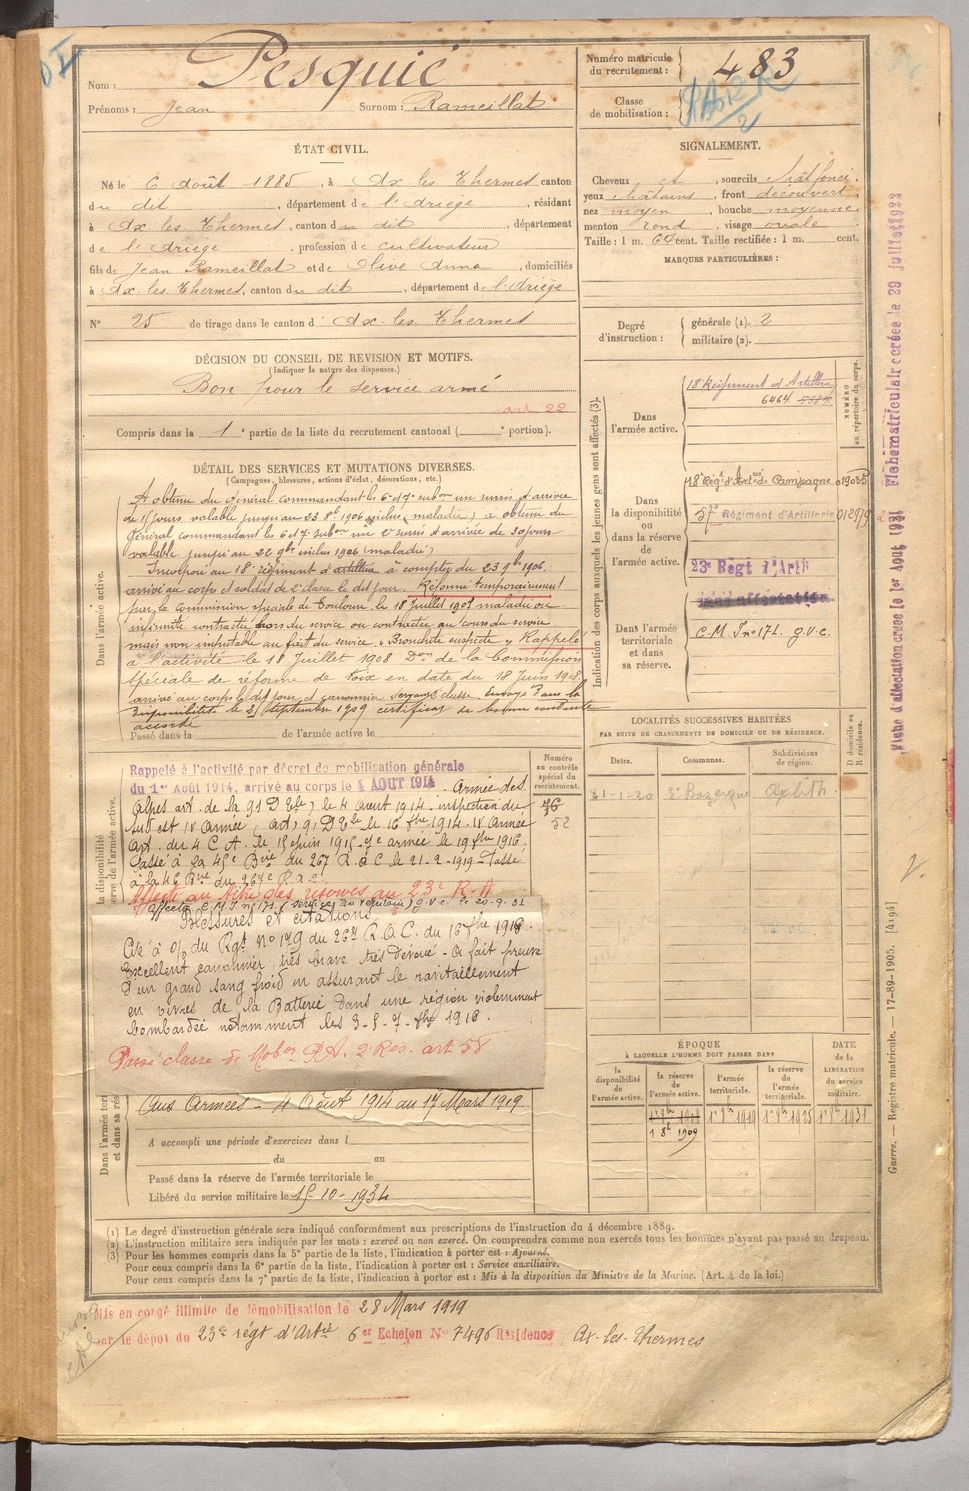 Nom : Pesquié
Prénoms : Jean Surnom : Rameillat
Numéro matricule du recrutement : 483
Classe de mobilisation :
ÉTAT CIVIL.
Né le 6 Août 1885, à Ax les Thermes canton
du dit, département de l'Ariège, résidant
à Ax les Thermes, canton du dit, département
de l'Ariège, profession de cultivateur
fils de Jean Rameillat et de Olive Anna, domiciliés
à Ax les Thermes, canton du dit, département de l'Ariège
N° 25 de tirage dans le canton d'Ax-les-Thermes
SIGNALEMENT.
Cheveux ct, sourcils chât foncé.
yeux châtains, front découvert
nez moyen, bouche moyenne
menton rond, visage ovale
Taille : 1 m. 64 cent. Taille rectifiée : 1 m. cent.
MARQUES PARTICULIÈRES :
Degré d'instruction : générale (1). 2
militaire (2).
DÉCISION DU CONSEIL DE REVISION ET MOTIFS.
(Indiquer la nature des dispenses.)
Bon pour le service armé
art 22
Compris dans la 1e partie de la liste du recrutement cantonal (e portion).
DÉTAIL DES SERVICES ET MUTATIONS DIVERSES.
(Campagnes, blessures, actions d'éclat, décorations, etc.)
Dans l'armée active.
A obtenu du général commandant les 6e et 7e subon un sursis d'arrivée
de 15 jours valable jusqu'au 23 8bre 1906 inclus (maladie) a obtenu du
Général commandant les 6 et 7 subon un 2e sursis d'arrivée de 30 jours
valable jusqu'au 22 9bre inclus 1906 (maladie)
Incorporé au 18e régiment d'artillerie à compter du 23 9bre 1906.
arrivé au corps et soldat de 2e classe le dit jour. Réformé temporairement
par la Commission spéciale de Toulouse le 18 Juillet 1907 maladie ou
infirmité contractée hors du service ou contractée au cours du service
mais non imputable au fait du service « Bronchite suspecte » Rappelé
à l'activité le 18 Juillet 1908 Don de la Commission
spéciale de réforme de Foix en date du 18 Juin 1908
arrivé au corps le dit jour et canonnier servant 2e classe envoyé dans la
disponibilité le 25 septembre 1909 certificat de bonne conduite
accordé
Passé dans la de l'armée active le
Rappelé à l'activité par décret de mobilisation générale
du 1er Août 1914, arrivé au corps le 4 AOUT 1914. Armée des
Alpes art. de la 91 D Tle, le 4 Aout 1914 - inspection du
sud est IV Armée, Art, 91 D Tle le 16 7bre 1914. IV Armée
Art. du 4 C A. le 15 juin 1915 - armée le 19 7bre 1916.
Passé à la 45e Bie du 267 R.A.C le 21-2-1919 Passé
à la 46 Bie du 267e R.a.c.
Affecté au titre des réserves au 23e R.A
affecté C.M.J n° 171 (service au territoire) g.v.c. le 20-9-31
Blessures et citations
Cité à o/ du Rgt N° 179 du 267 R.A.C. du 16 7bre 1916.
Excellent canonnier, très brave très dévoué - a fait preuve
d'un grand sang froid en assurant le ravitaillement
en vivres de la Batterie dans une région violemment
bombardée notamment les 3-5-7-7bre 1916.
Passé classe de Mobon R.A. 2e Res. art 58
Aux Armées - 4 Août 1914 au 17 Mars 1919.
A accompli une période d'exercices dans l
du au
Passé dans la réserve de l'armée territoriale le
Libéré du service militaire le 15-10-1934
Numéro au contrôle spécial du recrutement.
76
52
Indication des corps auxquels les jeunes gens sont affectés (3).
NUMÉRO au répertoire du corps.
Dans l'armée active.
18e Régiment d'Artillerie
6464
Dans la disponibilité ou dans la réserve de l'armée active.
18e Régt d'Artie de Campagne 019035
57e Régiment d'Artillerie 012979
23e Régt d'Artie
Dans l'armée territoriale et dans sa réserve.
sans affectation
C.M.J n° 171. g.v.c.
LOCALITÉS SUCCESSIVES HABITÉES
PAR SUITE DE CHANGEMENTS DE DOMICILE OU DE RÉSIDENCE.
Dates. Communes. Subdivisions de région. D domicile ou R résidence.
ÉPOQUE
À LAQUELLE L'HOMME DOIT PASSER DANS
la disponibilité de l'armée active. la réserve de l'armée active. l'armée territoriale. la réserve de l'armée territoriale.
DATE de la LIBÉRATION du service militaire.
1r 8bre 1908 1r 8bre 1919 1r 8bre 1925 1r 8bre 1931
1 8bt 1909
(1) Le degré d'instruction générale sera indiqué conformément aux prescriptions de l'instruction du 4 décembre 1889.
(2) L'instruction militaire sera indiquée par les mots : exercé ou non exercé. On comprendra comme non exercés tous les hommes n'ayant pas passé au drapeau.
(3) Pour les hommes compris dans la 5e partie de la liste, l'indication à porter est : Ajourné.
Pour ceux compris dans la 6e partie de la liste, l'indication à porter est : Service auxiliaire.
Pour ceux compris dans la 7e partie de la liste, l'indication à porter est : Mis à la disposition du Ministre de la Marine. (Art. 4 de la loi.)
Mis en congé illimité de démobilisation le 28 Mars 1919
par le dépôt du 23e régt d'Artie 6er Echelon N° 7496 Résidence Ax-les-Thermes
Fiche matriculaire créée le 29 juillet 1922
Fiche d'affectation créée le 1er Aout 1921
Guerre. — Registre matricule. — 17-89-1905. [4194]